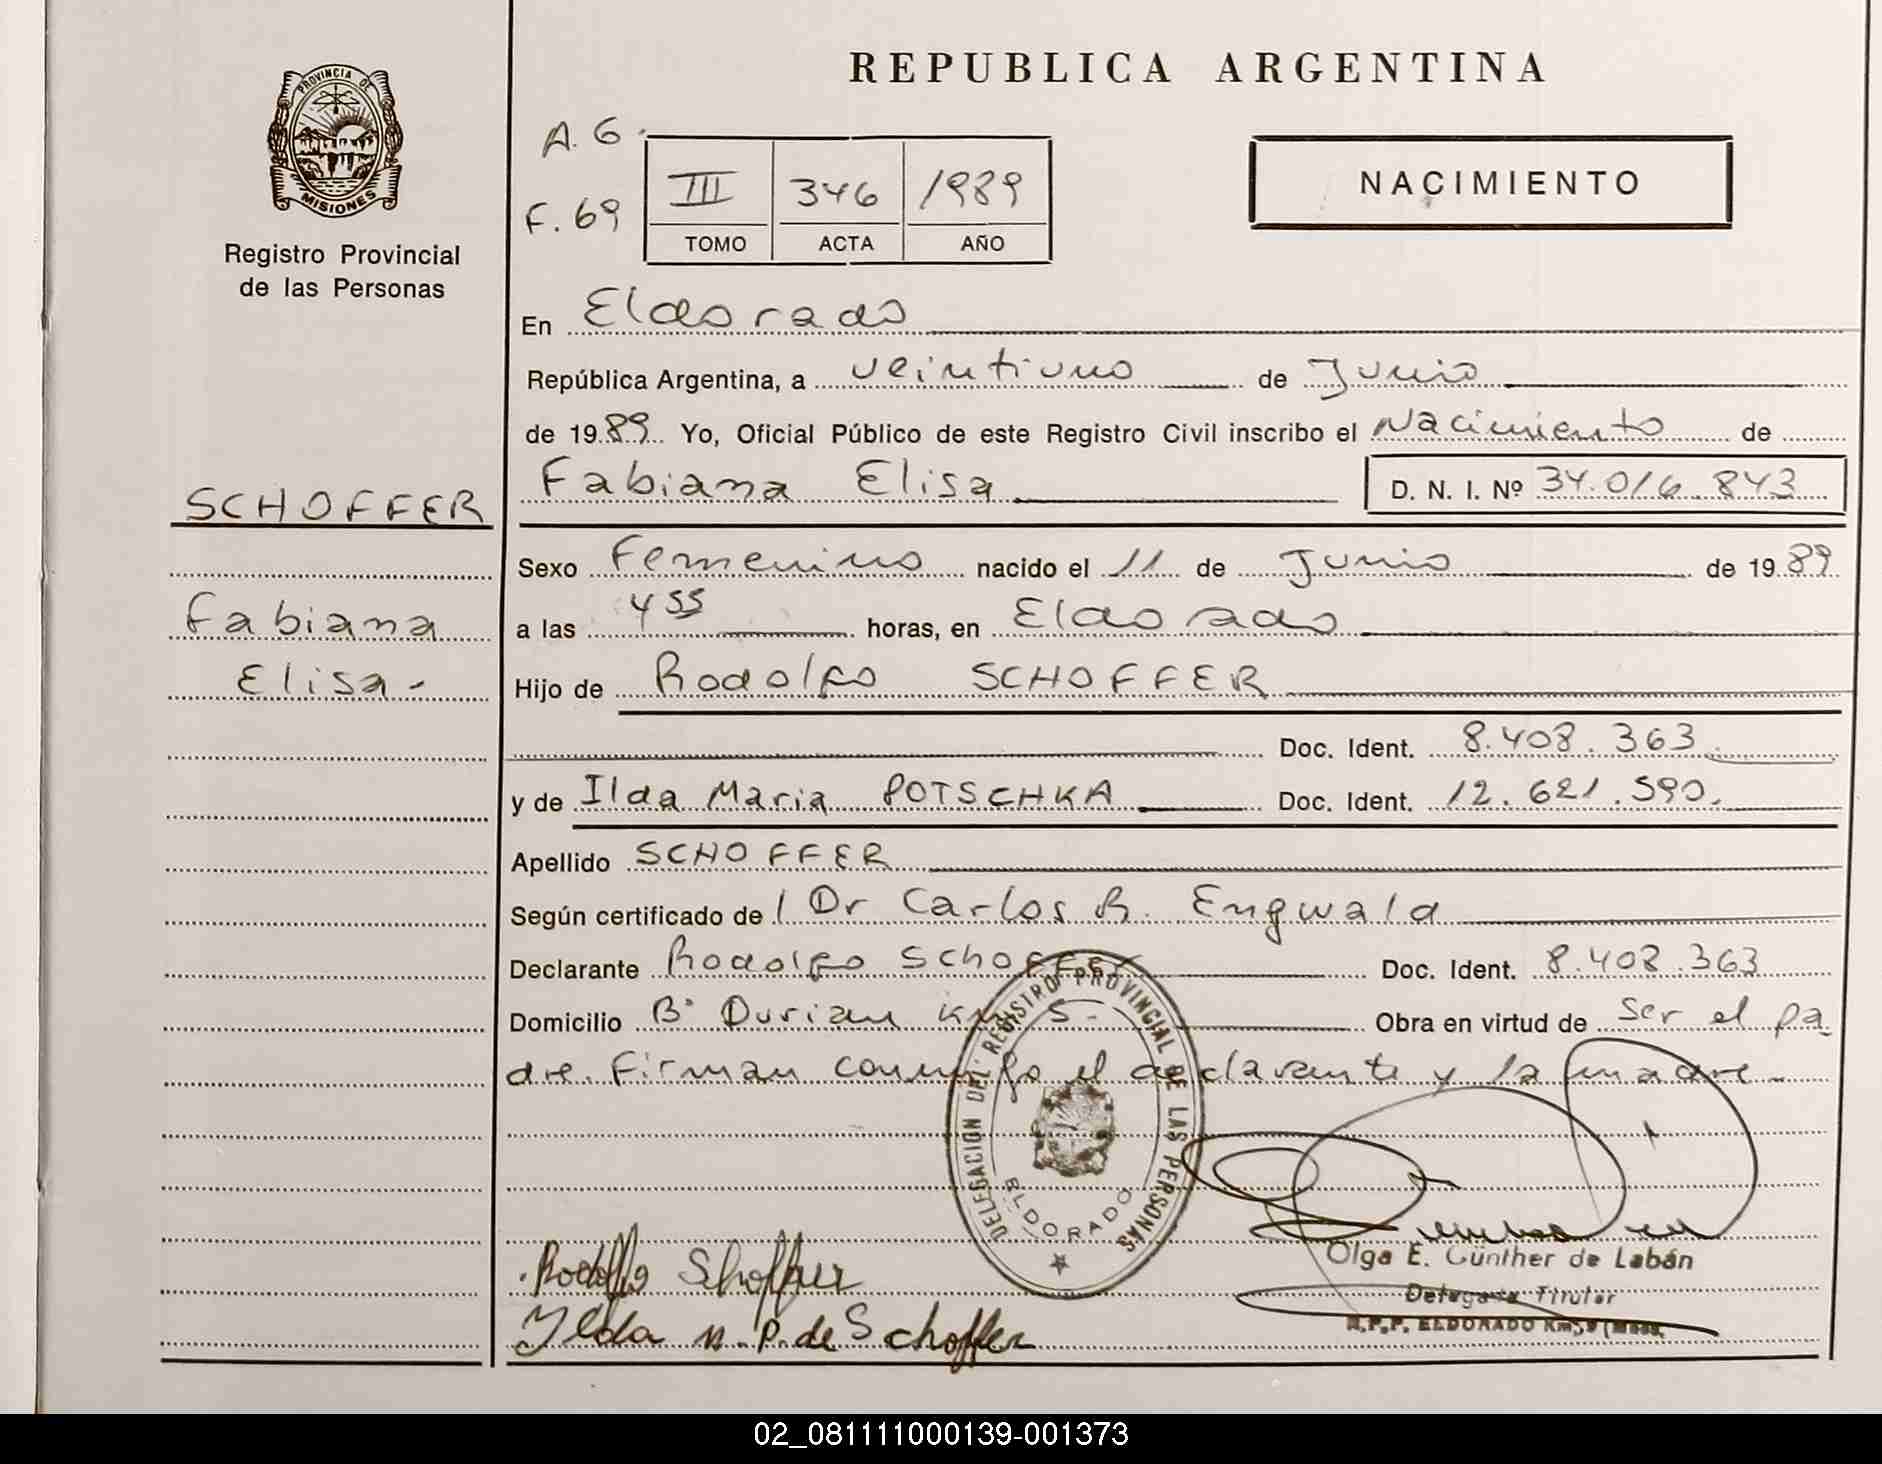 PROVINCIA DE
MISIONES
Registro Provincial
de las Personas
REPUBLICA ARGENTINA
A. G.
F. 69
III 346 1989
TOMO ACTA AÑO
NACIMIENTO
En Eldorado
República Argentina, a veintiuno de Junio
de 1989 Yo, Oficial Público de este Registro Civil inscribo el Nacimiento de
Fabiana Elisa D. N. I. Nº 34.016.843
SCHOFFER
Sexo Femenino nacido el 11 de Junio de 1989
Fabiana
a las 4 55 horas, en Eldorado
Elisa -
Hijo de Rodolfo SCHOFFER
Doc. Ident. 8.408.363
y de Ilda Maria POTSCHKA Doc. Ident. 12.621.590.
Apellido SCHOFFER
Según certificado de l Dr Carlos R. Engwald
Declarante Rodolfo Schoffer Doc. Ident. 8.408.363
Domicilio Bº Durian Km 5 - Obra en virtud de ser el pa
dre. Firman conmigo el declarante y la madre -
DELEGACION DEL REGISTRO PROVINCIAL DE LAS PERSONAS
ELDORADO
Rodolfo Schoffer
Ylda M. P. de Schoffer
Olga E. Günther de Labán
Delegada Titular
R.P.P. ELDORADO Km. 9 (Mnes.
02_081111000139-001373